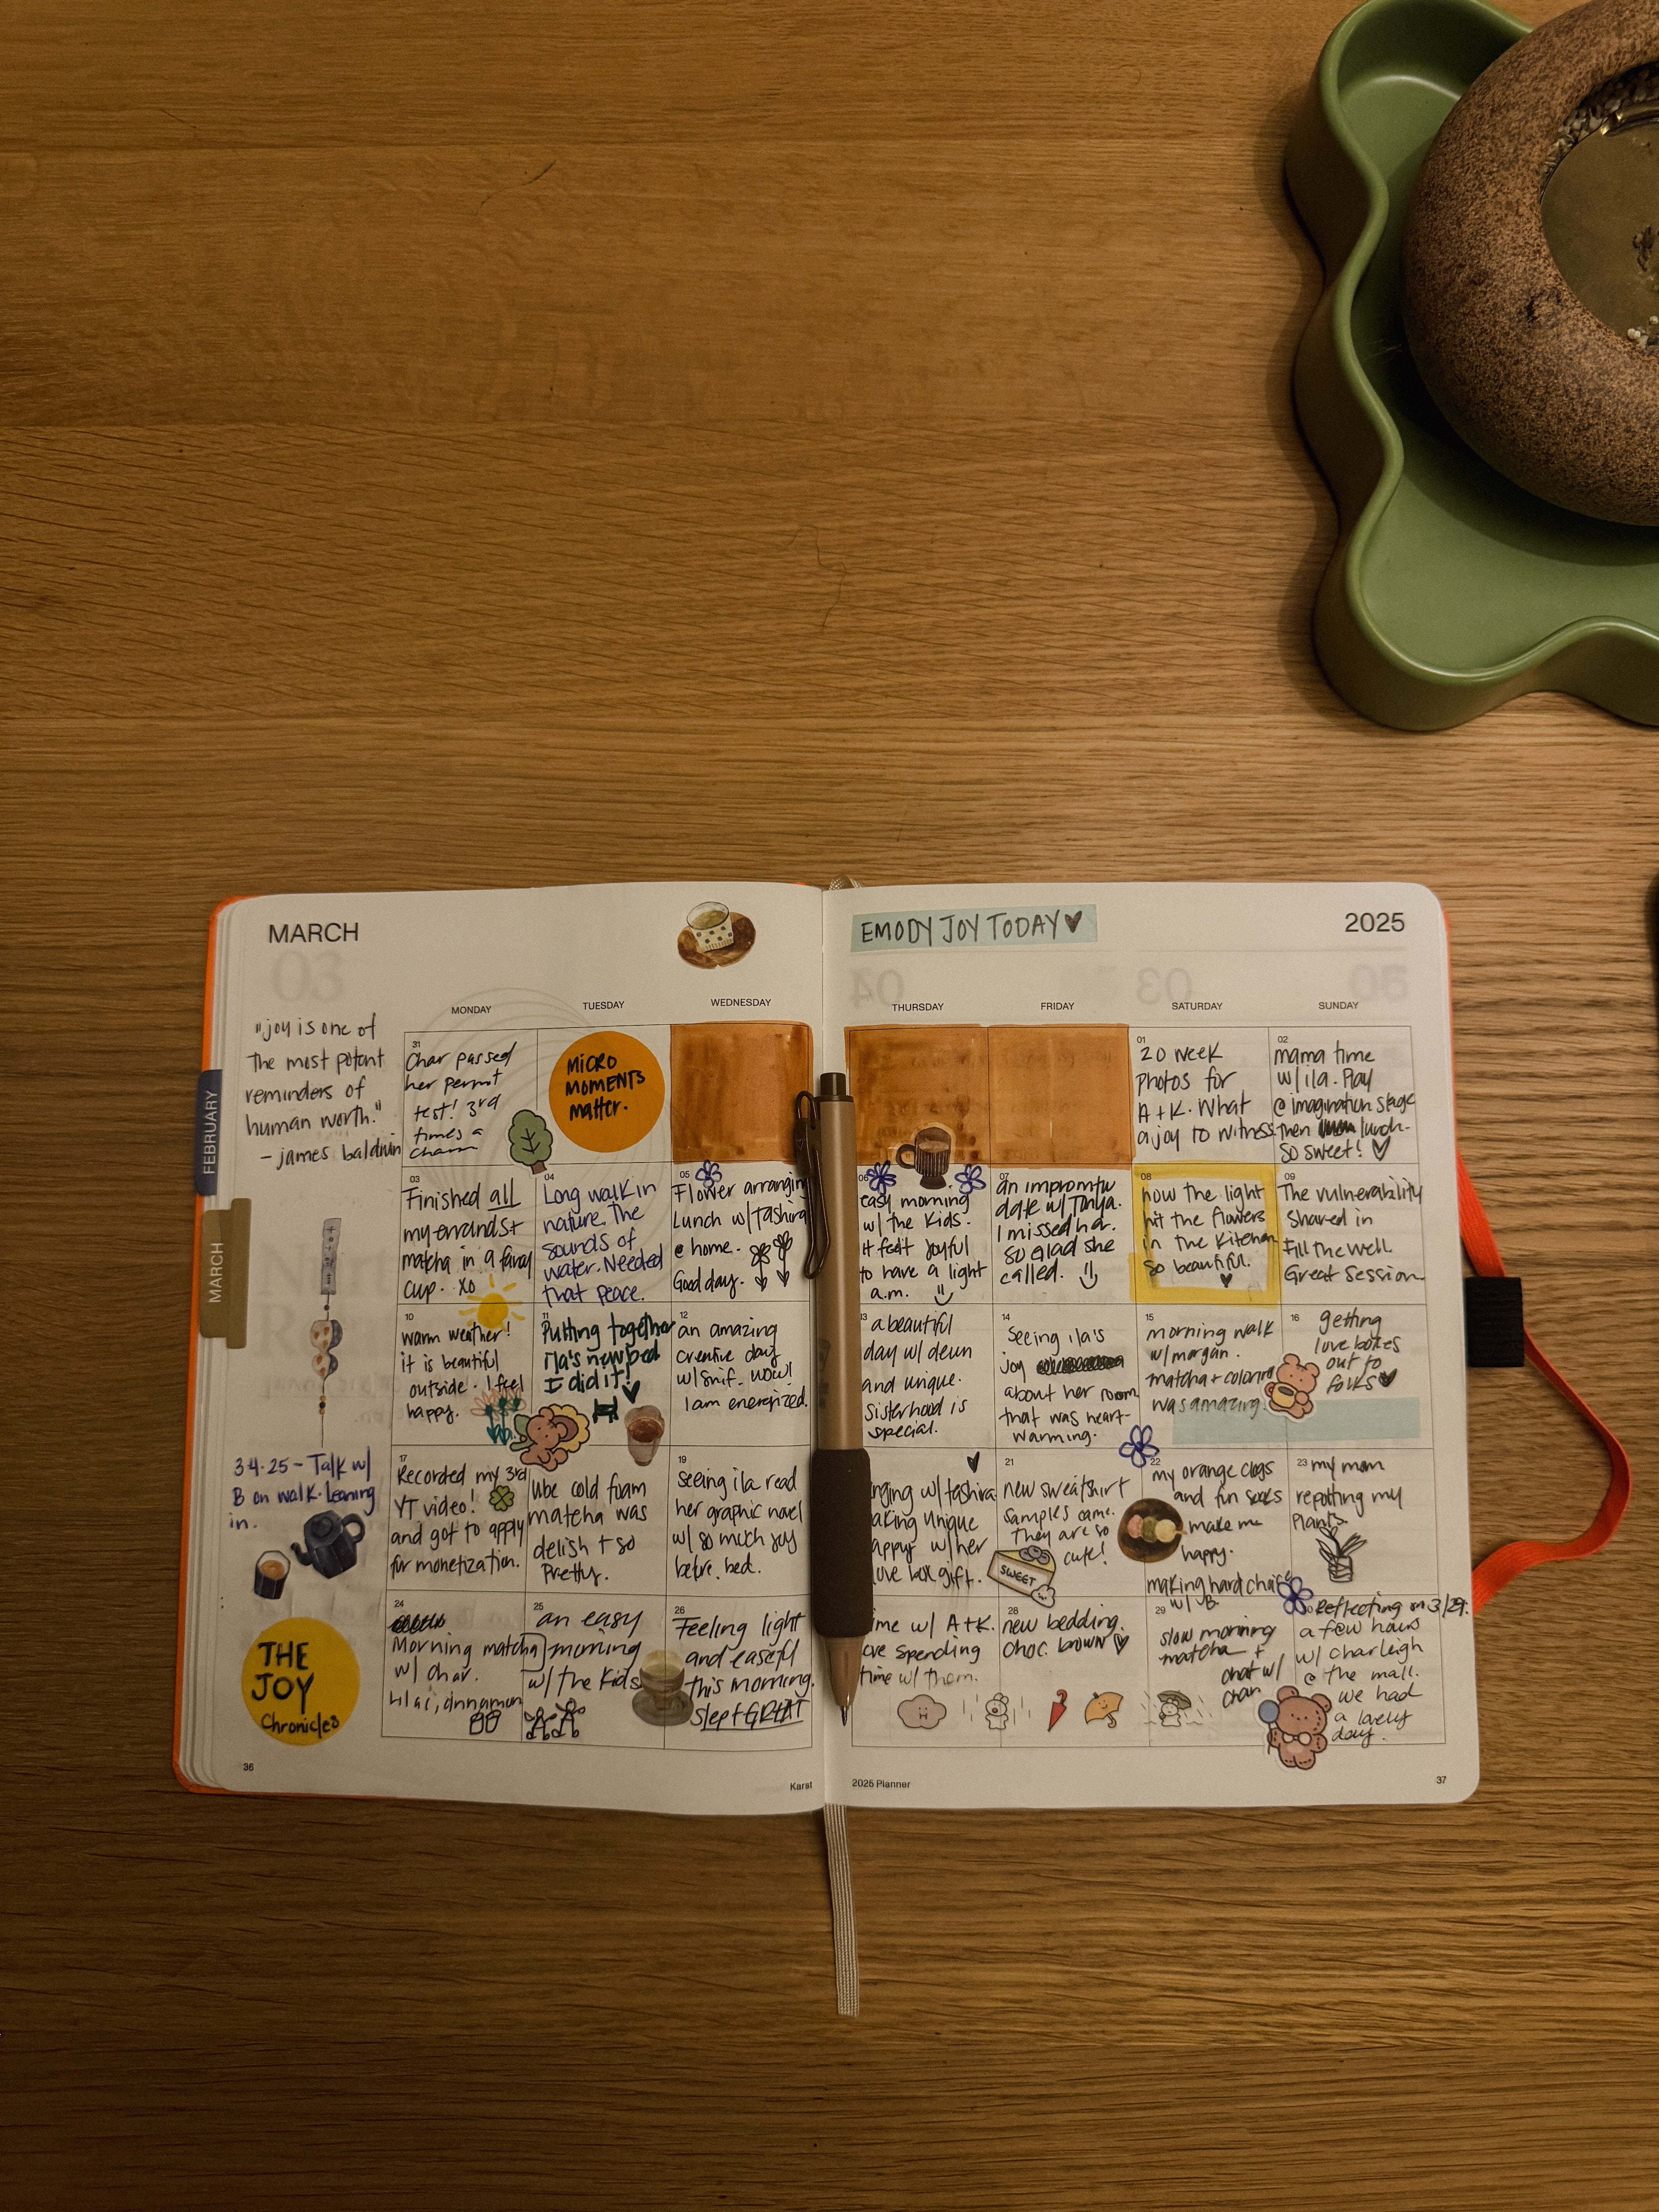 MARCH
EMODY JOY TODAY
2025
MONDAY
TUESDAY
WEDNESDAY
THURSDAY
FRIDAY
SATURDAY
SUNDAY
FEBRUARY
MARCH
"joy is one of
the most potent
reminders of
human worth."
- james baldwin
31
Char passed
her permit
test! 3rd
times a
charm
MICRO
MOMENTS
matter.
01
20 week
photos for
A + K. What
a joy to witness.
02
mama time
w/ ila. Play
@ imagination stage
then lunch.
so sweet!
03
Finished all
my errands +
matcha in a fancy
cup. xo
04
Long walk in
nature. The
sounds of
water. Needed
that peace.
05
Flower arranging
Lunch w/ Tashira
@ home.
Good day.
06
easy morning
w/ the kids.
it felt joyful
to have a light
a.m.
07
an impromtu
date w/ Tonya.
I missed her.
so glad she
called.
08
how the light
hit the flowers
in the kitchen
so beautiful.
09
The vulnerability
shared in
Fill the well.
Great Session
10
warm weather!
it is beautiful
outside. I feel
happy.
11
Putting together
ila's new bed
I did it!
12
an amazing
creative day
w/ Snif. wow!
I am energized.
13
a beautiful
day w/ deun
and unique.
sisterhood is
special.
14
Seeing ila's
joy
about her room
that was heart-
warming.
15
morning walk
w/ morgan.
matcha + coloring
was amazing!
16
getting
love boxes
out to
folks
3.4.25 - Talk w/
B on walk. Leaning
in.
17
Recorded my 3rd
YT video!
and got to apply
for monetization.
ube cold foam
matcha was
delish + so
pretty.
19
seeing ila read
her graphic novel
w/ so much joy
before bed.
nging w/ tashira
aking unique
appy w/ her
love box gift.
21
new sweatshirt
samples came.
They are so
cute!
SWEET
22
my orange clogs
and fun socks
make me
happy.
23
my mom
repotting my
plants.
THE
JOY
Chronicles
24
Morning matcha
w/ char.
cinnamon
25
an easy
morning
w/ the kids
26
Feeling light
and easeful
this morning.
slept GREAT
ime w/ A+K.
ove spending
time w/ them.
28
new bedding.
choc. brown
making hard choices
w/ B.
29
slow morning
matcha +
chat w/
char
30
Reflecting on 3/29.
a few hours
w/ Charleigh
@ the mall.
we had
a lovely
day.
36
Karst
2025 Planner
37